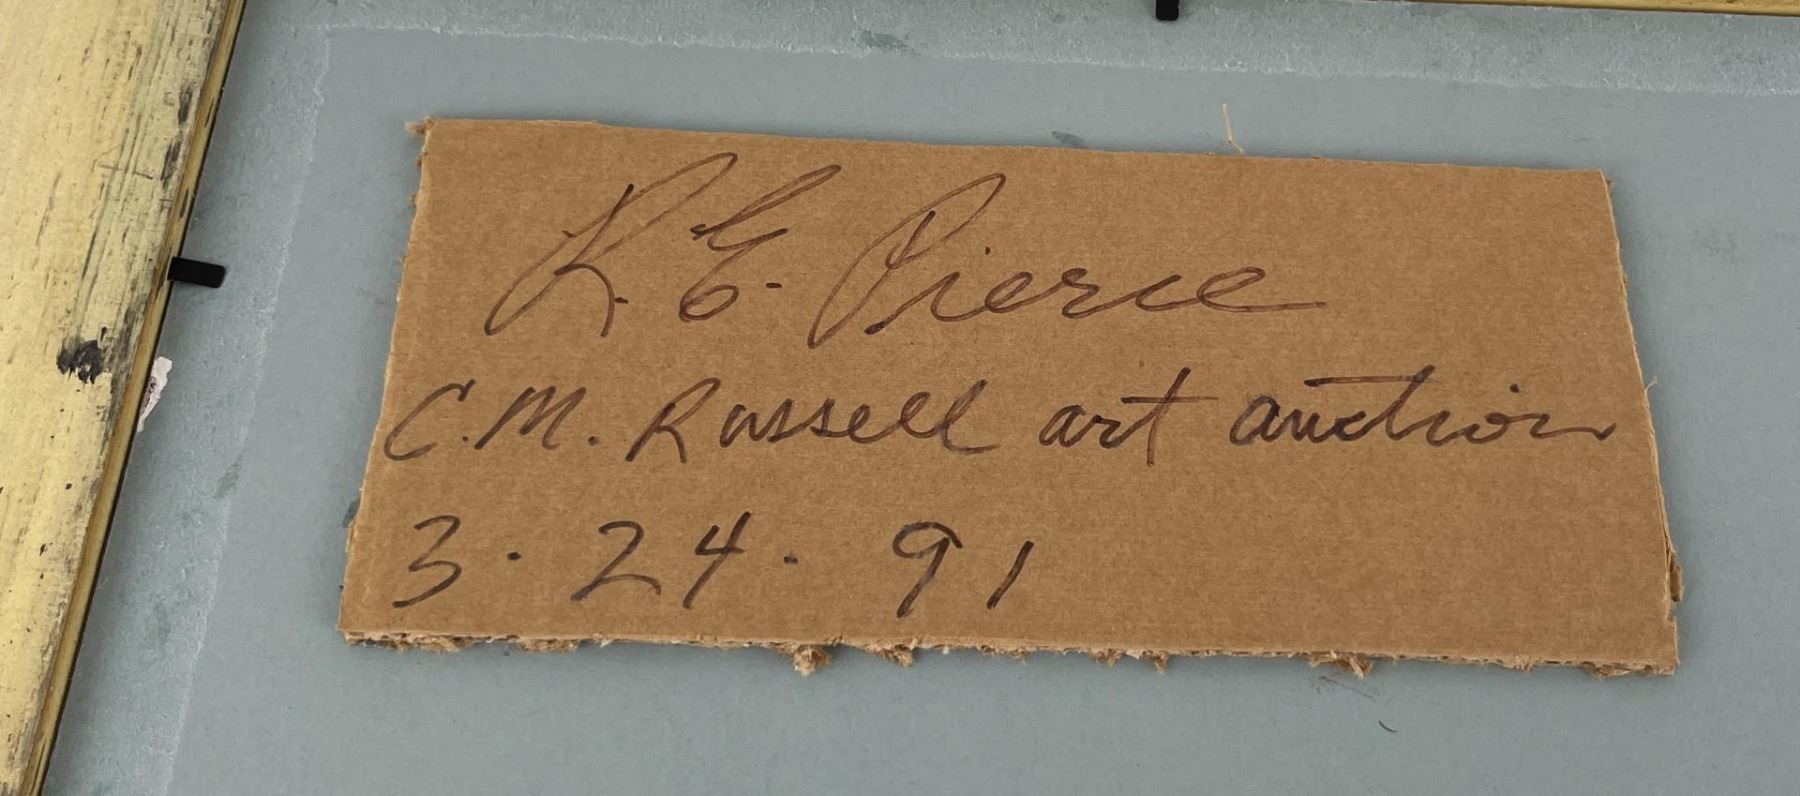 R. E. Pierce
C. M. Russell art auction
3 · 24 · 91